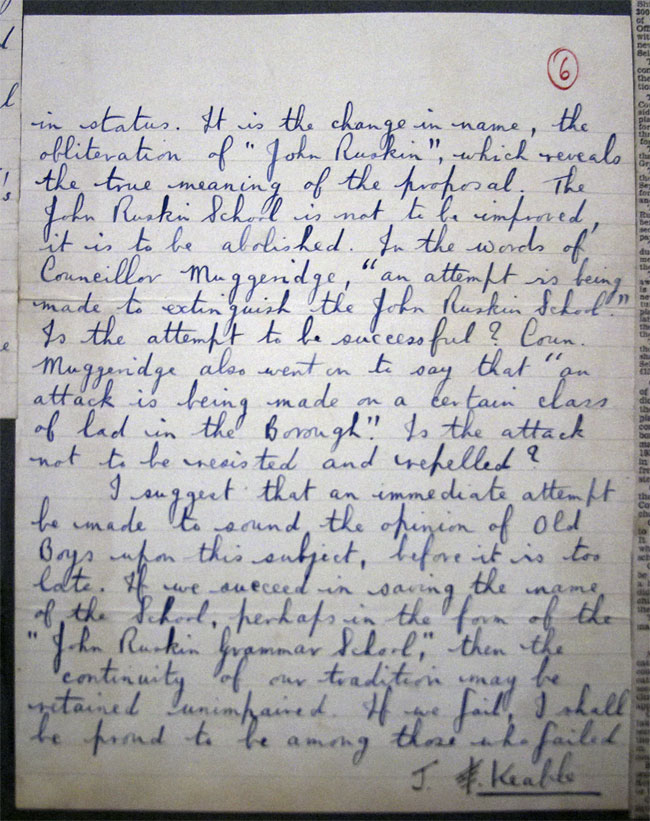 6
in status. It is the change in name, the
obliteration of "John Ruskin", which reveals
the true meaning of the proposal. The
John Ruskin School is not to be improved,
it is to be abolished. In the words of
Councillor Muggeridge, "an attempt is being
made to extinguish the John Ruskin School."
Is the attempt to be successful? Coun.
Muggeridge also went on to say that "an
attack is being made on a certain class
of lad in the Borough." Is the attack
not to be resisted and repelled?
I suggest that an immediate attempt
be made to sound the opinion of Old
Boys upon this subject, before it is too
late. If we succeed in saving the name
of the School, perhaps in the form of the
"John Ruskin Grammar School," then the
continuity of our tradition may be
retained unimpaired. If we fail, I shall
be proud to be among those who failed
J. F. Keable